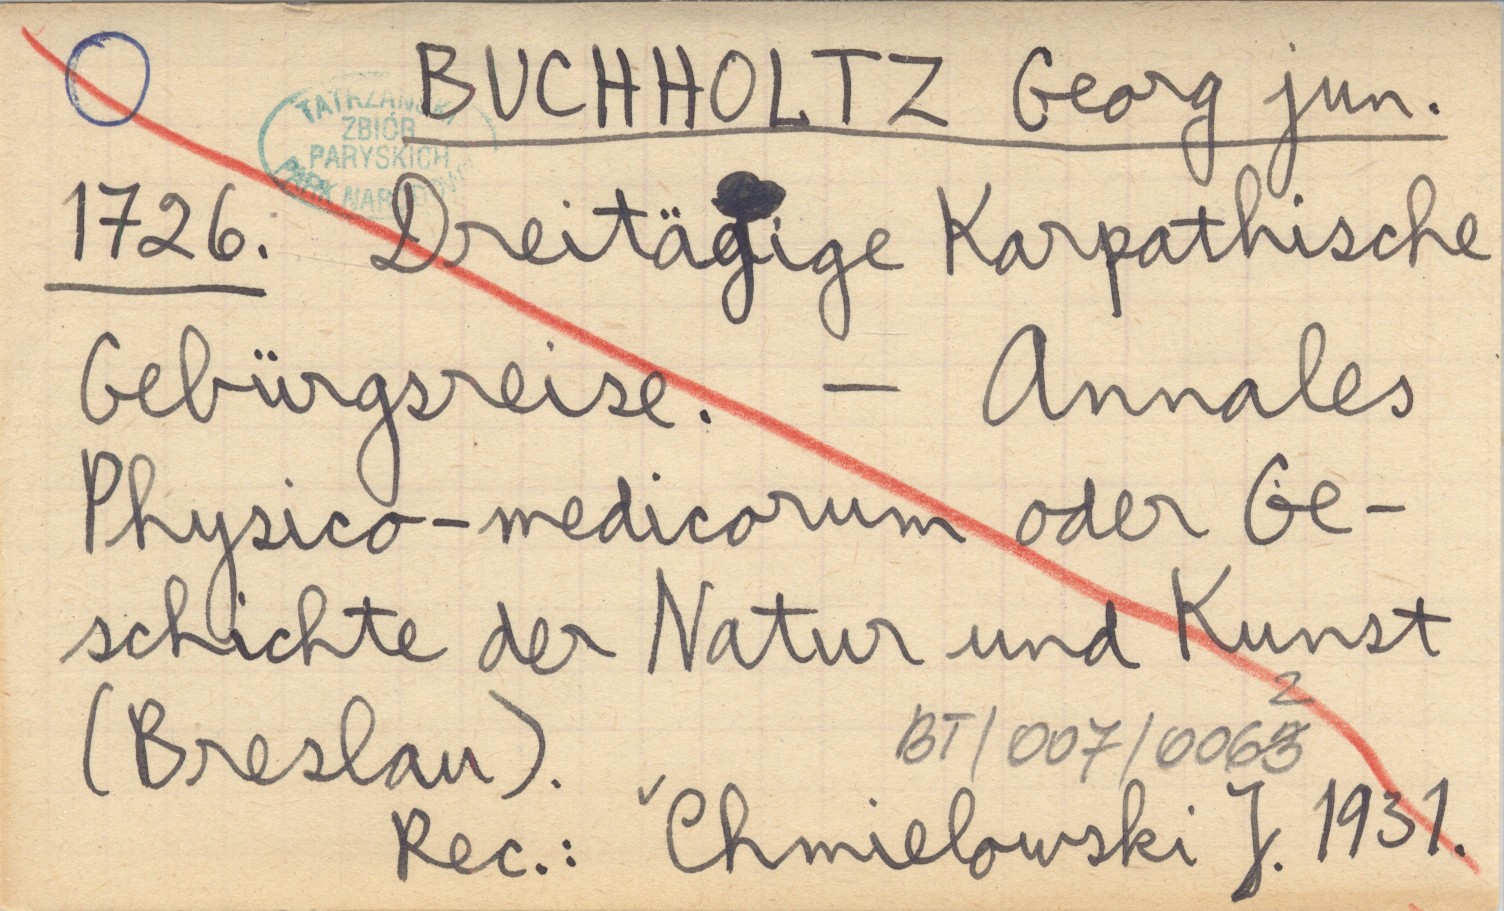 BUCHHOLTZ Georg jun.
TATRZAŃSKI
ZBIÓR
PARYSKICH
PARK NARODOWY
1726. Dreitägige Karpathische
Gebürgsreise. – Annales
Physico-medicorum oder Ge-
schichte der Natur und Kunst
(Breslau).
2
BT/007/0063
Rec.: ✓Chmielowski J. 1931.